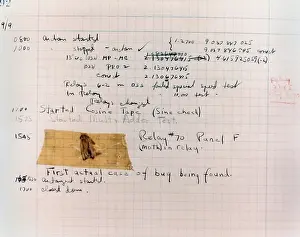 9/9
0800 antan started
1000 " stopped - antan ✓
13" uc (032) MP - MC
(033) PRO 2 2.130476415
conect 2.130676415
Relays 6-2 in 033 failed special speed test
in relay
Relays changed
1100 Started Cosine Tape (Sine check)
1525 Started Multi Adder Test.
1545 Relay #70 Panel F
(moth) in relay.
First actual case of bug being found.
antangent started.
1700 closed down.